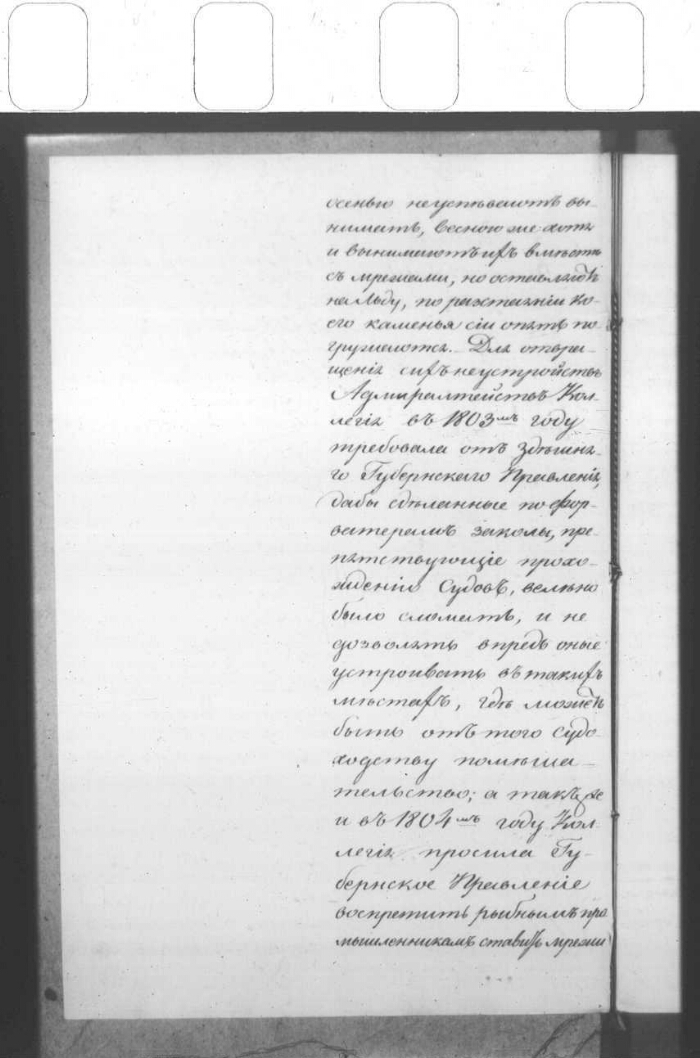 осенью неуспѣваютъ вы-
нимать, весною же хотя
и вынимаютъ ихъ вмѣстѣ
съ мрежами, но оставляютъ
на льду, по разтаяніи ко-
его каменья сіи опять по
гружаются. Для отвра-
щенія сихъ неустройствъ
Адмиралтействъ Кол-
легія въ 1803мъ году
требовала отъ здѣшня-
го Губернскаго Правленія,
дабы сдѣланные по фор-
ватерамъ заколы, пре-
пятствующіе прохо-
жденію судовъ, велѣно
было сломать, и не
дозволять впредь оные
устроивать въ такихъ
мѣстахъ, гдѣ можетъ
быть отъ того судо
ходству помѣша-
тельство; а такъ же
и въ 1804мъ году Кол-
легія просила Гу-
бернское Правленіе
воспретить рыбнымъ про
мышленникамъ ставить мрежи